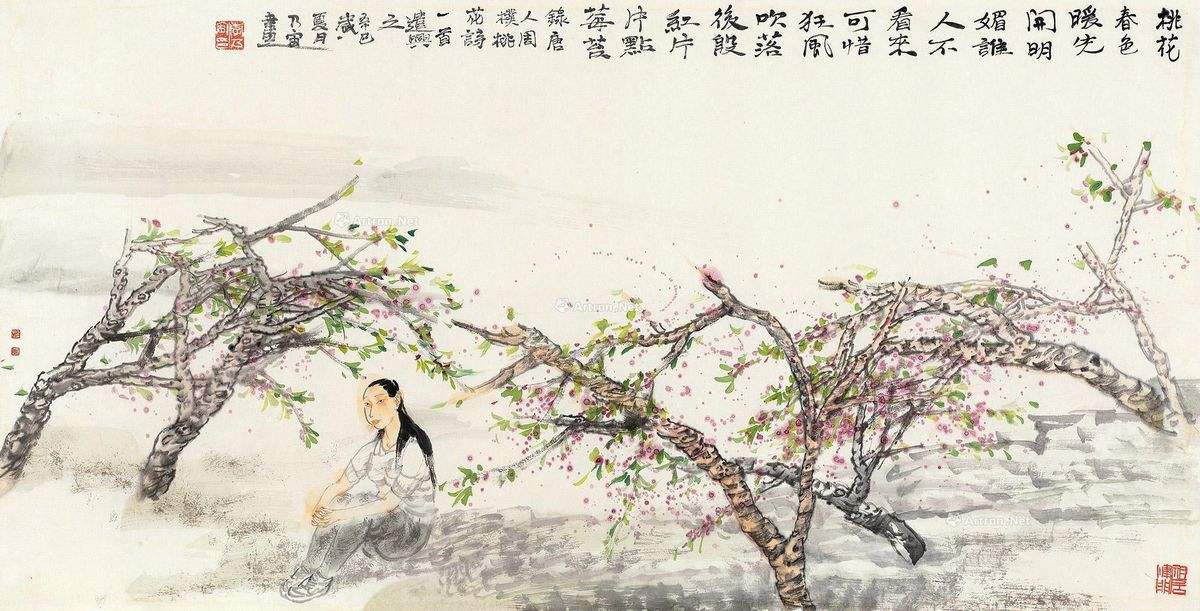 桃花
春色
暖先
開明
媚誰
人不
看來
可惜
狂風
吹落
後殷
紅片
片點
莓苔
錄唐
人周
撲桃
花詩
一首
遣興
之
辛巳歲
夏月
乃宙
Artron.Net
Artron.Net
Artron.Net